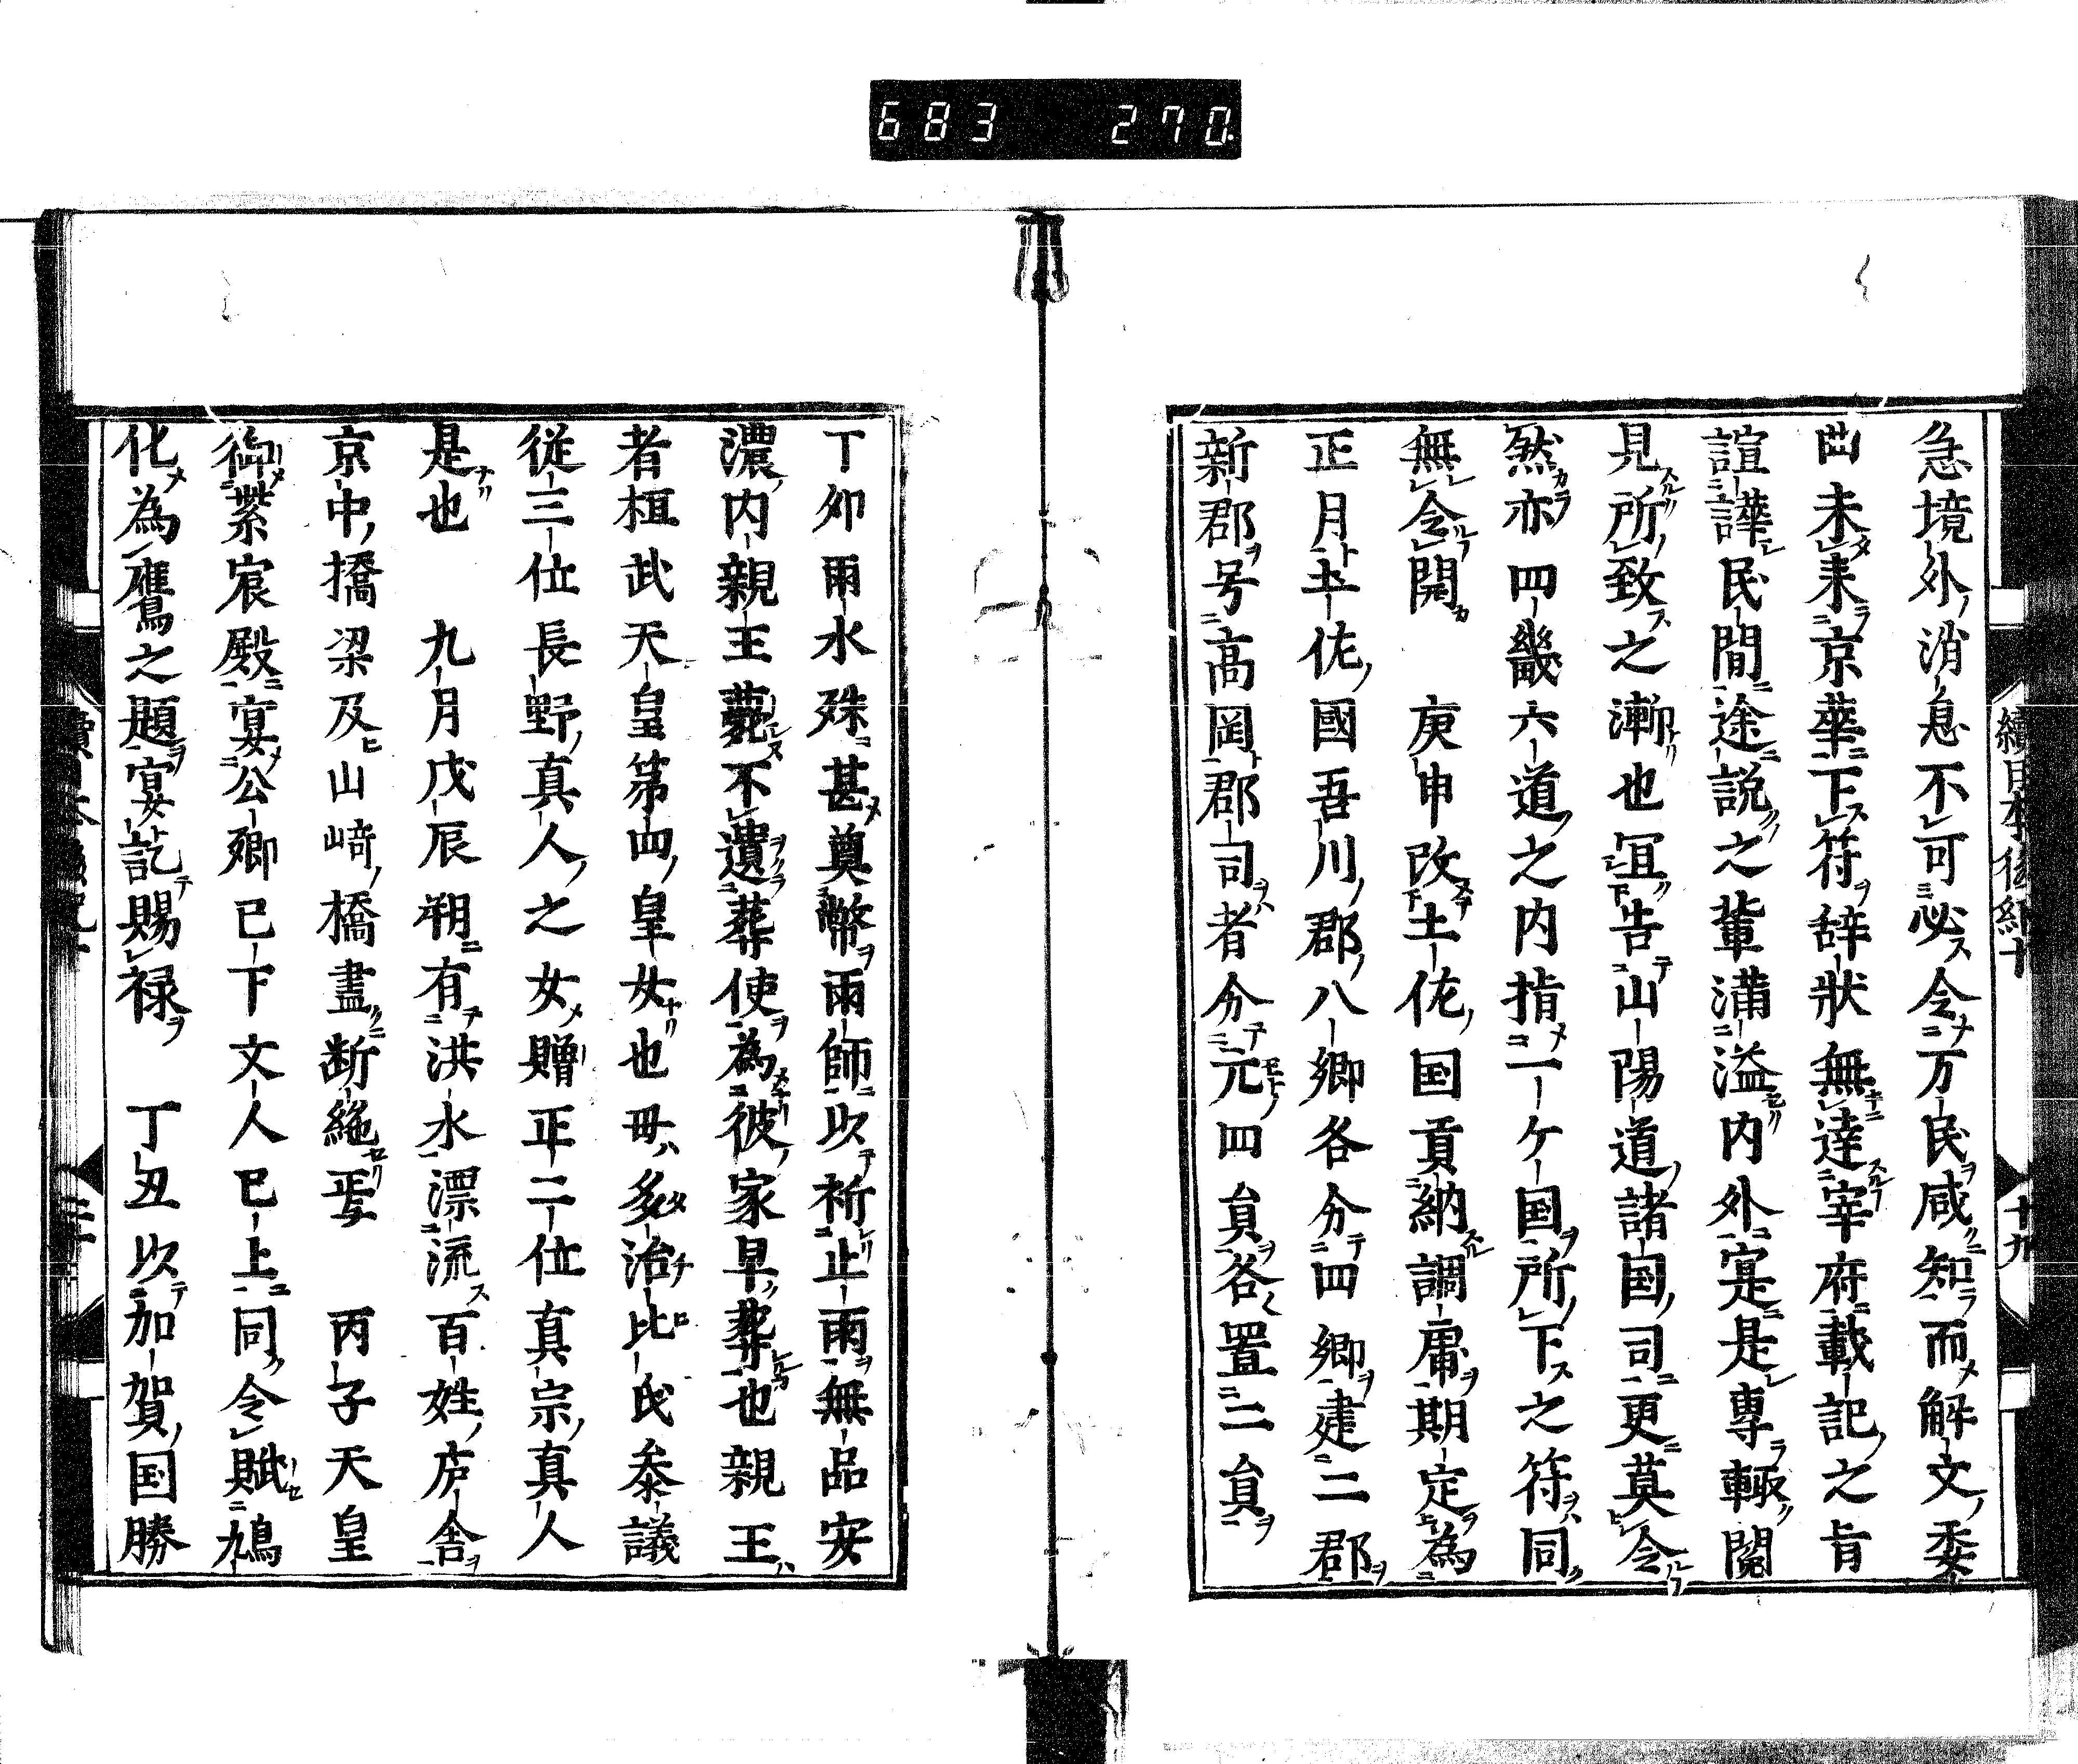 683 270
續日本後紀十
十九
急境外消息不可必令万民咸知而解文委
曲未来京華下符辞狀無達宰府載記之肯
諠譁民間途説之輩溝溢内外寔是專輙関
見所致之漸也宜告山陽道諸国司更莫令
然亦四畿六道之内指一ケ国所下之符同
無令開　庚申改土佐国貢納調庸期定為
正月土佐國吾川郡八郷各分四郷建二郡
新郡号高岡郡司者分元四負各置二負
丁夘雨水殊甚奠幣雨師以祈止雨無品安
濃内親王薨不遺葬使為彼家早葬也親王
者桓武天皇第四皇女也毋多治比氏叅議
従三位長野真人之女贈正二位真宗真人
是也　九月戊辰朔有洪水漂流百姓庐舎
京中橋梁及山﨑橋盡断絶焉　丙子天皇
御紫宸殿宴公卿已下文人已上同令賦鳩
化為鷹之題宴訖賜禄　丁丑以加賀国勝
二十